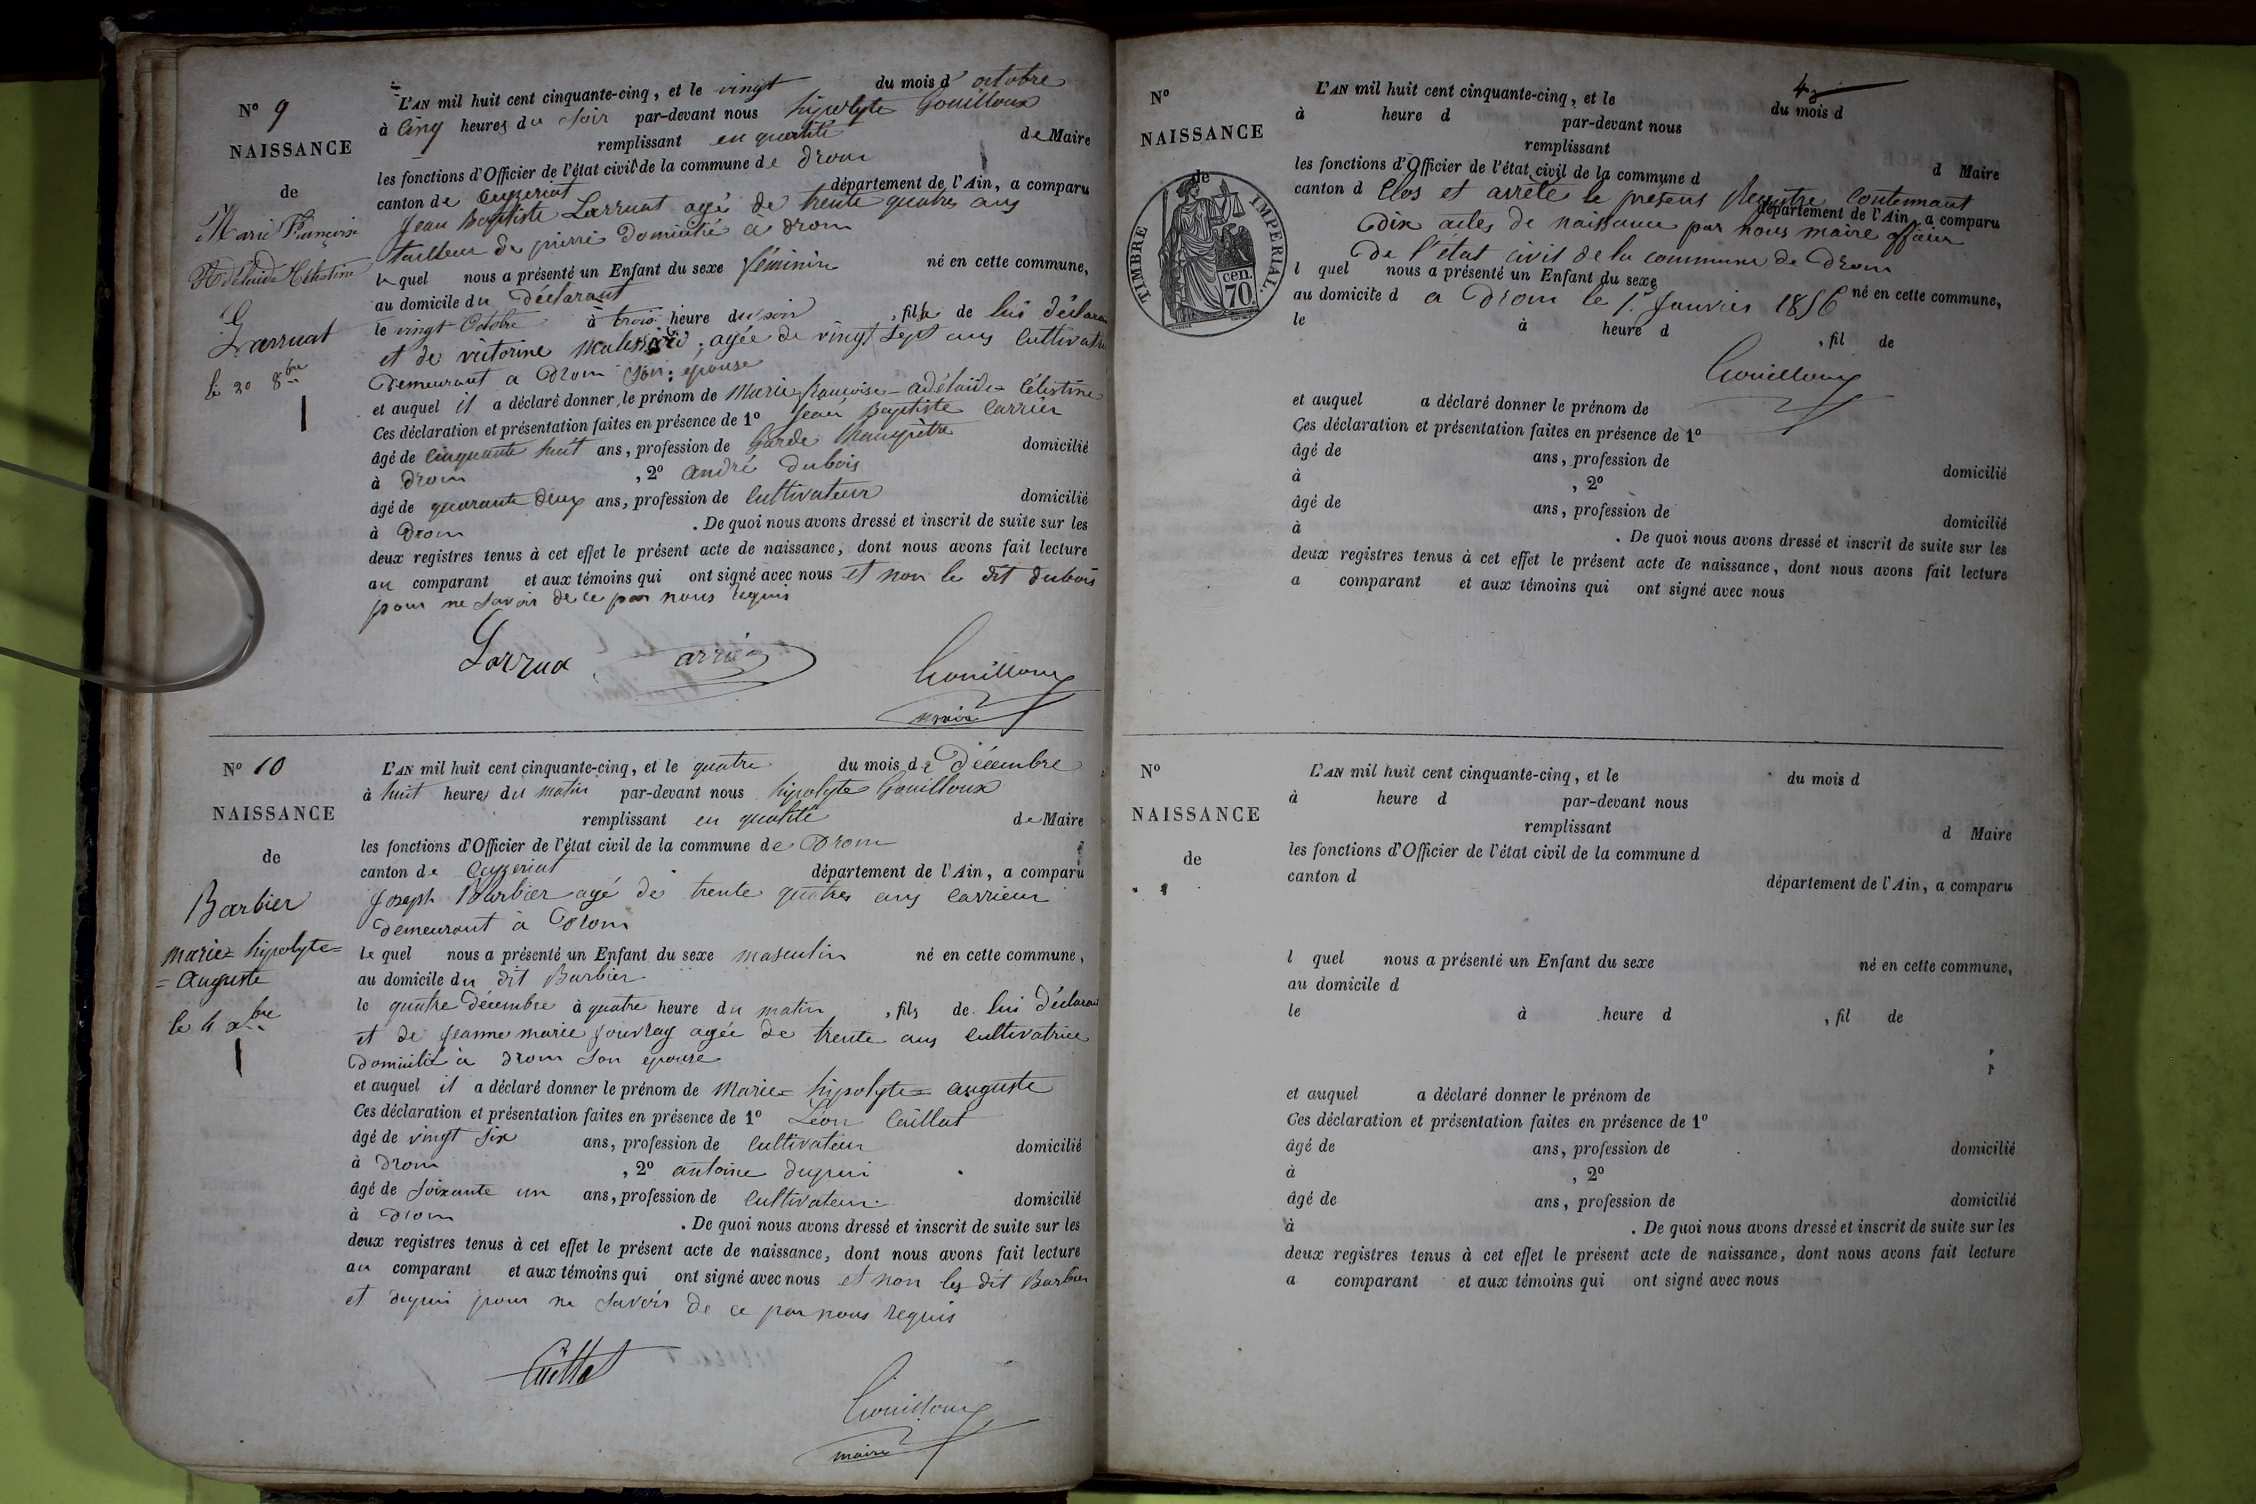 N° 9
NAISSANCE
de
Marie Françoise
Adélaide Célestine
Larruat
le 20 8bre
L'AN mil huit cent cinquante-cinq, et le vingt du mois d'octobre
à Cinq heures du soir par-devant nous hipolyte Gouilloux
remplissant en qualité de Maire
les fonctions d'Officier de l'état civil de la commune de Drom
canton de Ceyzeriat département de l'Ain, a comparu
Jean Baptiste Larruat agé de trente quatres ans
tailleur de pierre Domicilié à Drom
le quel nous a présenté un Enfant du sexe féminin né en cette commune,
au domicile du Déclarant
le vingt Octobre à trois heure du soir, fille de lui déclarant
et de victorine agée de vingt sept ans Cultivatrice
Demeurant a Drom son epouse
et auquel il a déclaré donner le prénom de Marie françoise - adélaide = Célestine
Ces déclaration et présentation faites en présence de 1° Jean Baptiste Carrier
âgé de Cinquante huit ans, profession de Garde Champêtre domicilié
à Drom, 2° André Dubois
âgé de quarante deux ans, profession de Cultivateur domicilié
à Drom. De quoi nous avons dressé et inscrit de suite sur les
deux registres tenus à cet effet le présent acte de naissance, dont nous avons fait lecture
au comparant et aux témoins qui ont signé avec nous et non le dit Dubois
pour ne savoir de ce par nous requis
Larrua arrier Gouilloux
maire
N° 10
NAISSANCE
de
Barbier
marie = hipolyte =
= Auguste
le 4 xbre
L'AN mil huit cent cinquante-cinq, et le quatre du mois de Décembre
à huit heures du matin par-devant nous hipolyte Gouilloux
remplissant en qualité de Maire
les fonctions d'Officier de l'état civil de la commune de Drom
canton de Ceyzeriat département de l'Ain, a comparu
Joseph Barbier agé de trente quatres ans Carrieur
demeurant à Drom
le quel nous a présenté un Enfant du sexe masculin né en cette commune,
au domicile du dit Barbier
le quatre Décembre à quatre heure du matin, fils de lui Déclarant
et de Jeanne marie Jouvray agée de trente ans Cultivatrice
Domicilié à Drom son epouse
et auquel il a déclaré donner le prénom de Marie = hipolyte = auguste
Ces déclaration et présentation faites en présence de 1° Léon Caillat
âgé de vingt six ans, profession de Cultivateur domicilié
à Drom, 2° antoine dupui
âgé de soixante un ans, profession de Cultivateur domicilié
à Drom. De quoi nous avons dressé et inscrit de suite sur les
deux registres tenus à cet effet le présent acte de naissance, dont nous avons fait lecture
au comparant et aux témoins qui ont signé avec nous et non les dit Barbier
et dupui pour ne savoir de ce par nous requis
Gouilloux
maire
N°
NAISSANCE
de
TIMBRE IMPERIAL.
cen.
70.
L'AN mil huit cent cinquante-cinq, et le du mois d
à heure d par-devant nous
remplissant d Maire
les fonctions d'Officier de l'état civil de la commune d
canton d département de l'Ain, a comparu
Clos et arrêté le présent Registre Contennant
Dix actes de naissance par nous maire officier
De l'état civil de la commune de Drom
l quel nous a présenté un Enfant du sexe né en cette commune,
au domicile d
a Drom le 1er Janvier 1856
le à heure d, fil de
Gouilloux
et auquel a déclaré donner le prénom de
Ces déclaration et présentation faites en présence de 1°
âgé de ans, profession de domicilié
à, 2°
âgé de ans, profession de domicilié
à. De quoi nous avons dressé et inscrit de suite sur les
deux registres tenus à cet effet le présent acte de naissance, dont nous avons fait lecture
a comparant et aux témoins qui ont signé avec nous
N°
NAISSANCE
de
L'AN mil huit cent cinquante-cinq, et le du mois d
à heure d par-devant nous
remplissant d Maire
les fonctions d'Officier de l'état civil de la commune d
canton d département de l'Ain, a comparu
l quel nous a présenté un Enfant du sexe né en cette commune,
au domicile d
le à heure d, fil de
et auquel a déclaré donner le prénom de
Ces déclaration et présentation faites en présence de 1°
âgé de ans, profession de domicilié
à, 2°
âgé de ans, profession de domicilié
à. De quoi nous avons dressé et inscrit de suite sur les
deux registres tenus à cet effet le présent acte de naissance, dont nous avons fait lecture
a comparant et aux témoins qui ont signé avec nous